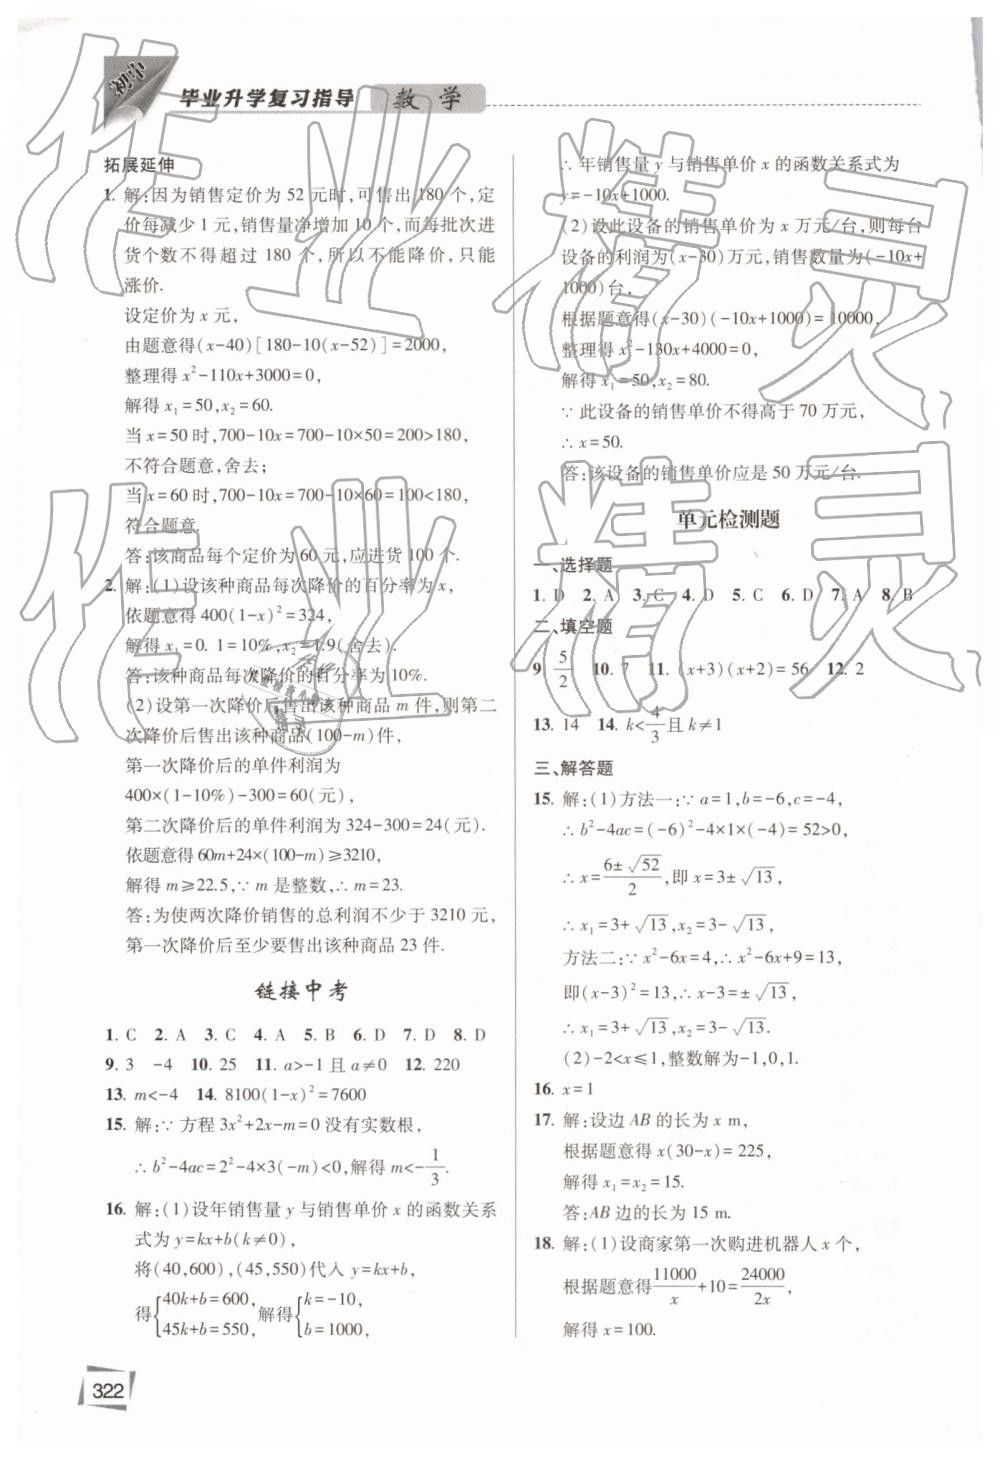 初中
毕业升学复习指导 数 学
拓展延伸
1. 解:因为销售定价为 52 元时,可售出 180 个,定
价每减少 1 元,销售量净增加 10 个,而每批次进
货个数不得超过 180 个,所以不能降价,只能
涨价.
设定价为 x 元,
由题意得(x-40)[180-10(x-52)]=2000,
整理得 x²-110x+3000=0,
解得 x₁=50,x₂=60.
当 x=50 时,700-10x=700-10×50=200>180,
不符合题意,舍去;
当 x=60 时,700-10x=700-10×60=100<180,
符合题意.
答:该商品每个定价为 60 元,应进货 100 个.
2. 解:(1)设该种商品每次降价的百分率为 x,
依题意得 400(1-x)²=324,
解得 x₁=0. 1=10%,x₂=1.9(舍去).
答:该种商品每次降价的百分率为 10%.
(2)设第一次降价后售出该种商品 m 件,则第二
次降价后售出该种商品(100-m)件,
第一次降价后的单件利润为
400×(1-10%)-300=60(元),
第二次降价后的单件利润为 324-300=24(元).
依题意得 60m+24×(100-m)≥3210,
解得 m≥22.5,∵m 是整数,∴m=23.
答:为使两次降价销售的总利润不少于 3210 元,
第一次降价后至少要售出该种商品 23 件.
链接中考
1. C 2. A 3. C 4. A 5. B 6. D 7. D 8. D
9. 3 -4 10. 25 11. a>-1 且 a≠0 12. 220
13. m<-4 14. 8100(1-x)²=7600
15. 解:∵方程 3x²+2x-m=0 没有实数根,
∴b²-4ac=2²-4×3(-m)<0,解得 m<-1/3.
16. 解:(1)设年销售量 y 与销售单价 x 的函数关系
式为 y=kx+b(k≠0),
将(40,600),(45,550)代入 y=kx+b,
得{40k+b=600, 45k+b=550, 解得{k=-10, b=1000,
322
∴年销售量 y 与销售单价 x 的函数关系式为
y=-10x+1000.
(2)设此设备的销售单价为 x 万元/台,则每台
设备的利润为(x-30)万元,销售数量为(-10x+
1000)台,
根据题意得(x-30)(-10x+1000)=10000,
整理得 x²-130x+4000=0,
解得 x₁=50,x₂=80.
∵此设备的销售单价不得高于 70 万元,
∴x=50.
答:该设备的销售单价应是 50 万元/台.
单元检测题
一、选择题
1. D 2. A 3. C 4. D 5. C 6. D 7. A 8. B
二、填空题
9. 5/2 10. 7 11. (x+3)(x+2)=56 12. 2
13. 14 14. k<4/3且 k≠1
三、解答题
15. 解:(1)方法一:∵a=1,b=-6,c=-4,
∴b²-4ac=(-6)²-4×1×(-4)=52>0,
∴x=(6±√52)/2,即 x=3±√13,
∴x₁=3+√13,x₂=3-√13.
方法二:∵x²-6x=4,∴x²-6x+9=13,
即(x-3)²=13,∴x-3=±√13,
∴x₁=3+√13,x₂=3-√13.
(2)-2<x≤1,整数解为-1,0,1.
16. x=1
17. 解:设边 AB 的长为 x m,
根据题意得 x(30-x)=225,
解得 x₁=x₂=15.
答:AB 边的长为 15 m.
18. 解:(1)设商家第一次购进机器人 x 个,
根据题意得11000/x+10=24000/2x,
解得 x=100.
作业精灵
作业精灵